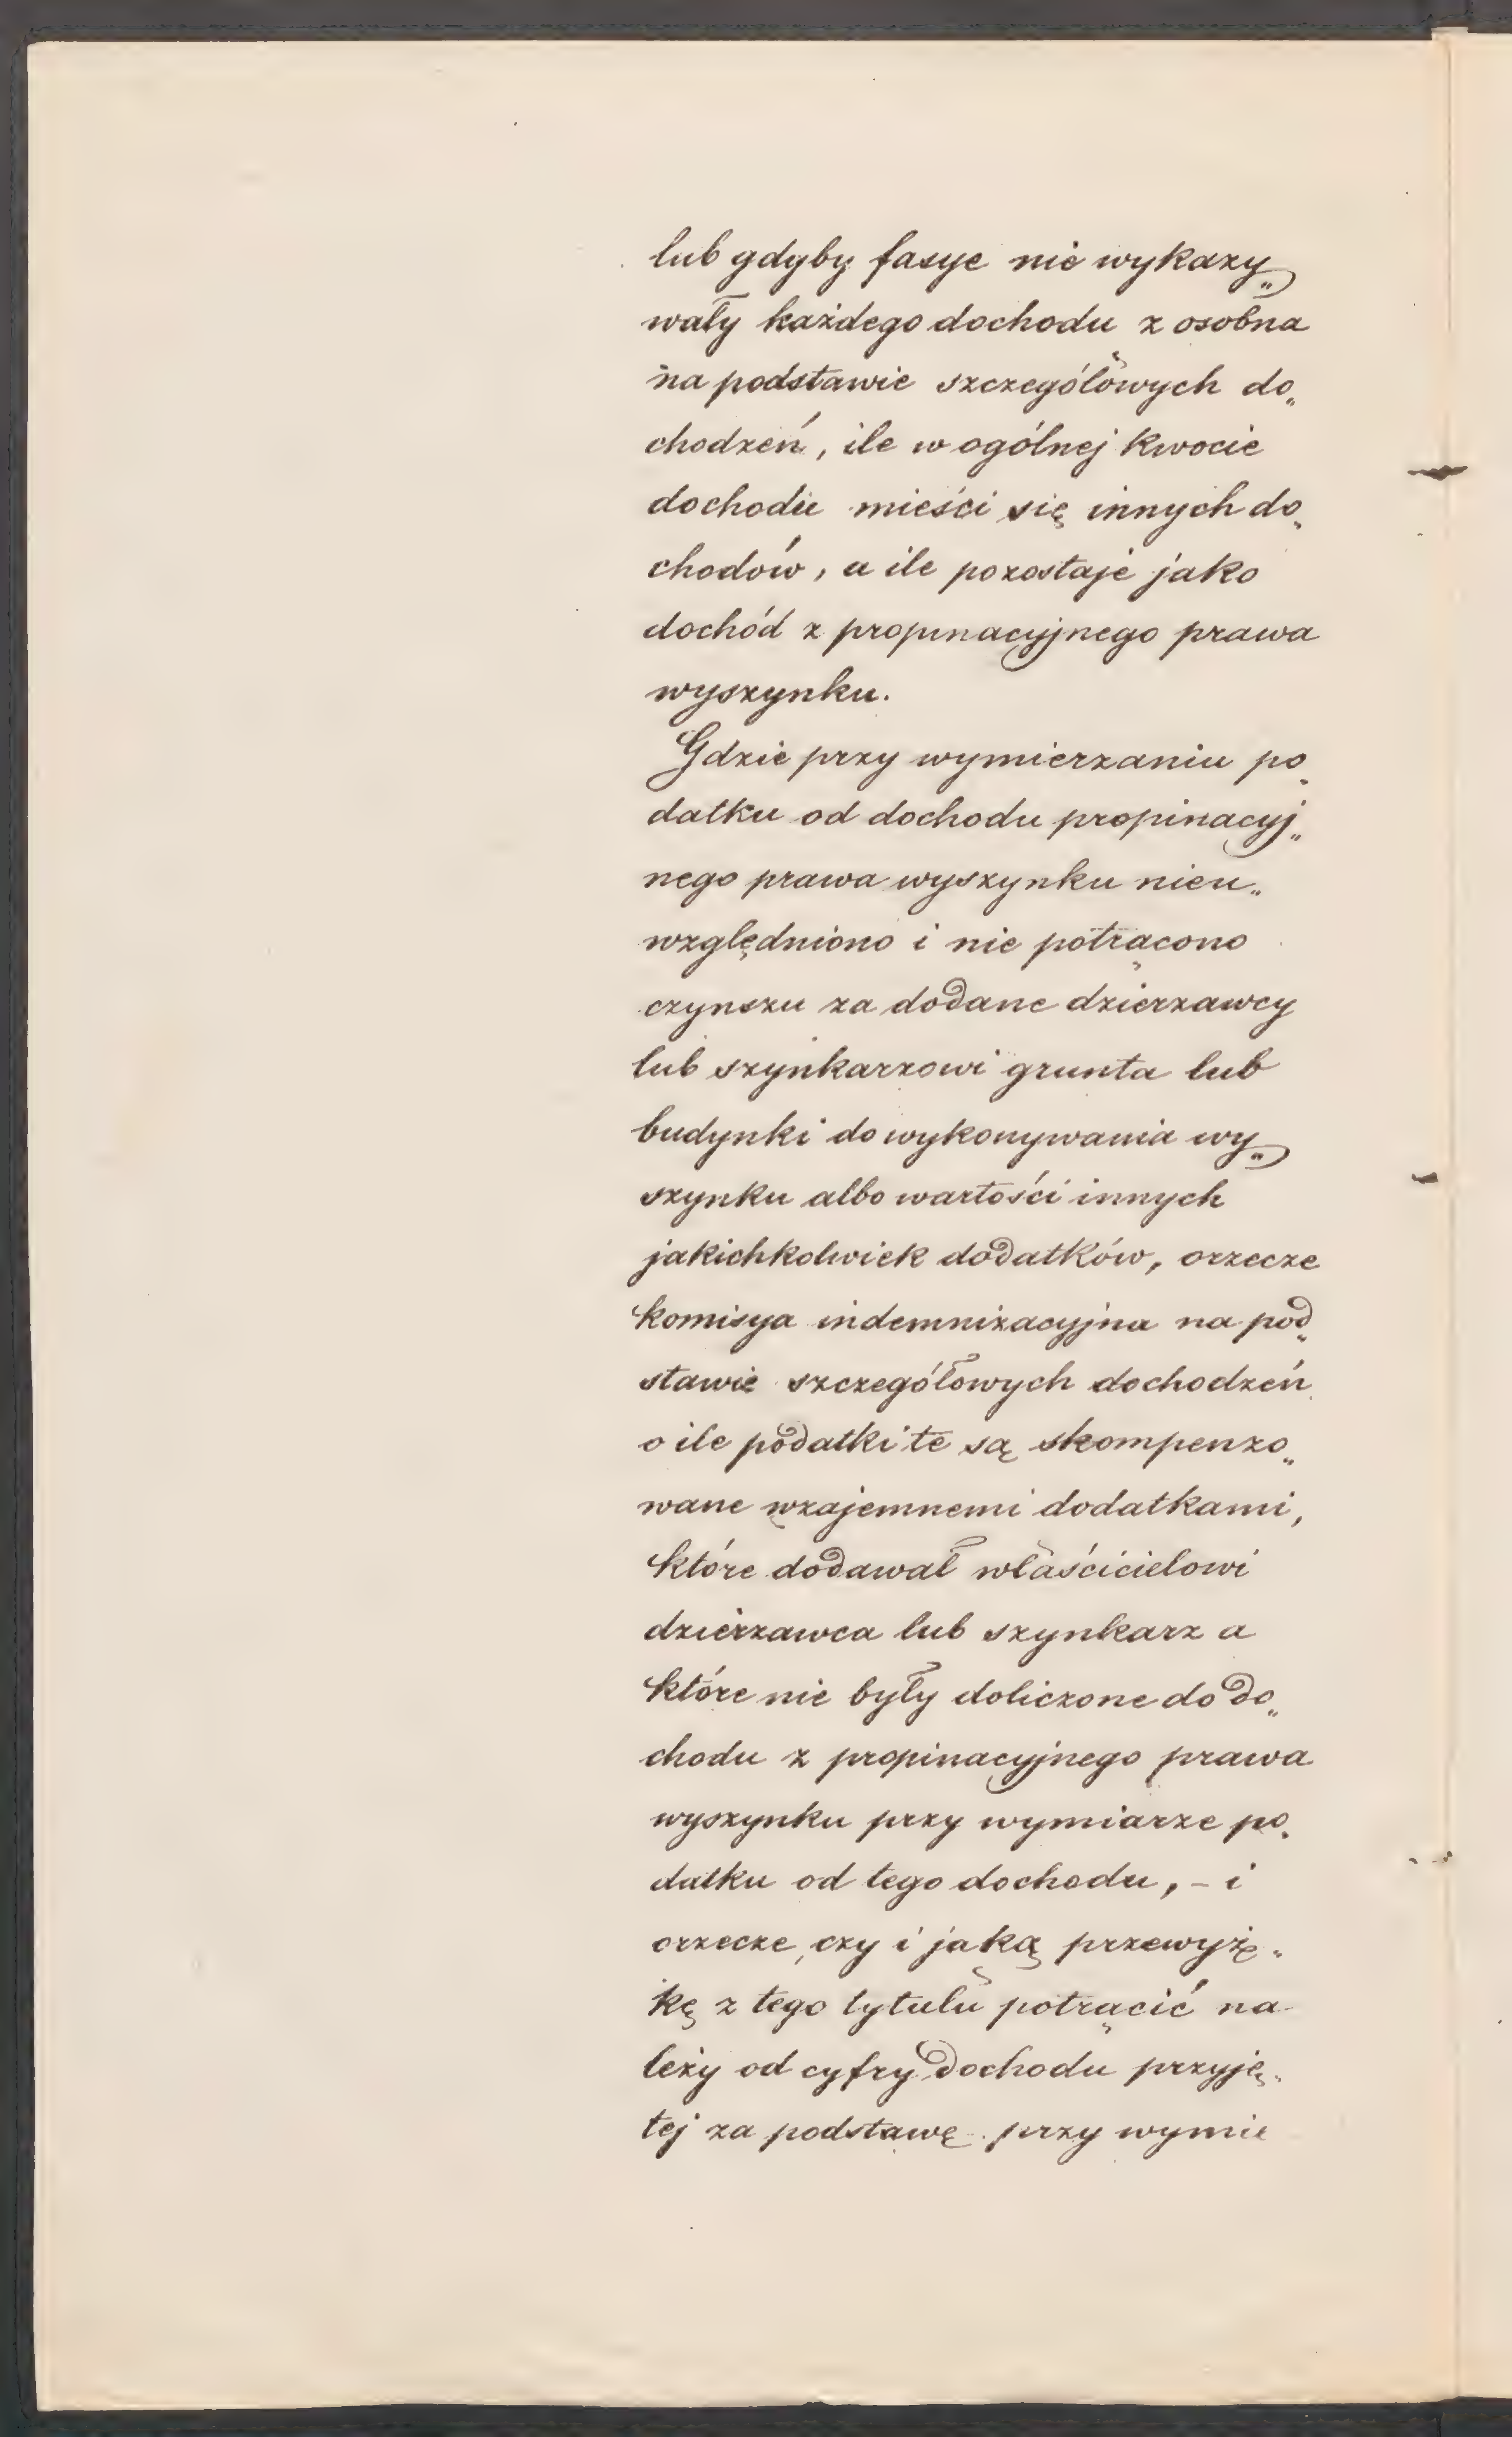 lub gdyby fasye nie wykazy„
wały każdego dochodu z osobna
na podstawie szczegółowych do„
chodzeń, ile w ogólnej kwocie
dochodu mieści się innych do„
chodów, a ile pozostaje jako
dochód z propinacyjnego prawa
wyszynku.
Gdzie przy wymierzaniu po„
datku od dochodu propinacyj„
nego prawa wyszynku nieu„
względniono i nie potrącono
czynszu za dodane dzierzawcy
lub szynkarzowi grunta lub
budynki do wykonywania wy„
szynku albo wartości innych
jakichkolwiek dodatków, orzecze
komisya indemnizacyjna na pod„
stawie szczegółowych dochodzeń
o ile podatki te są skompenzo„
wane wzajemnemi dodatkami,
które dodawał właścicielowi
dzierzawca lub szynkarz a
które nie były doliczone do do„
chodu z propinacyjnego prawa
wyszynku przy wymiarze po„
datku od tego dochodu, – i
orzecze, czy i jaką przewyżę„
kę z tego tytułu potrącić na
leży od cyfry dochodu przyję„
tej za podstawę przy wymie